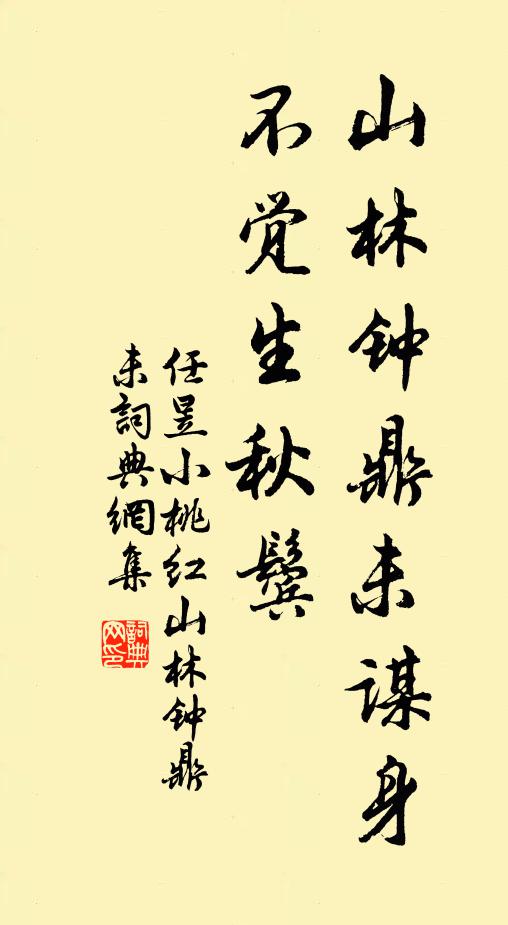 山林钟鼎未谋身
不觉生秋鬓
任昱小桃红山林钟鼎
未詞典網集
詞典网印